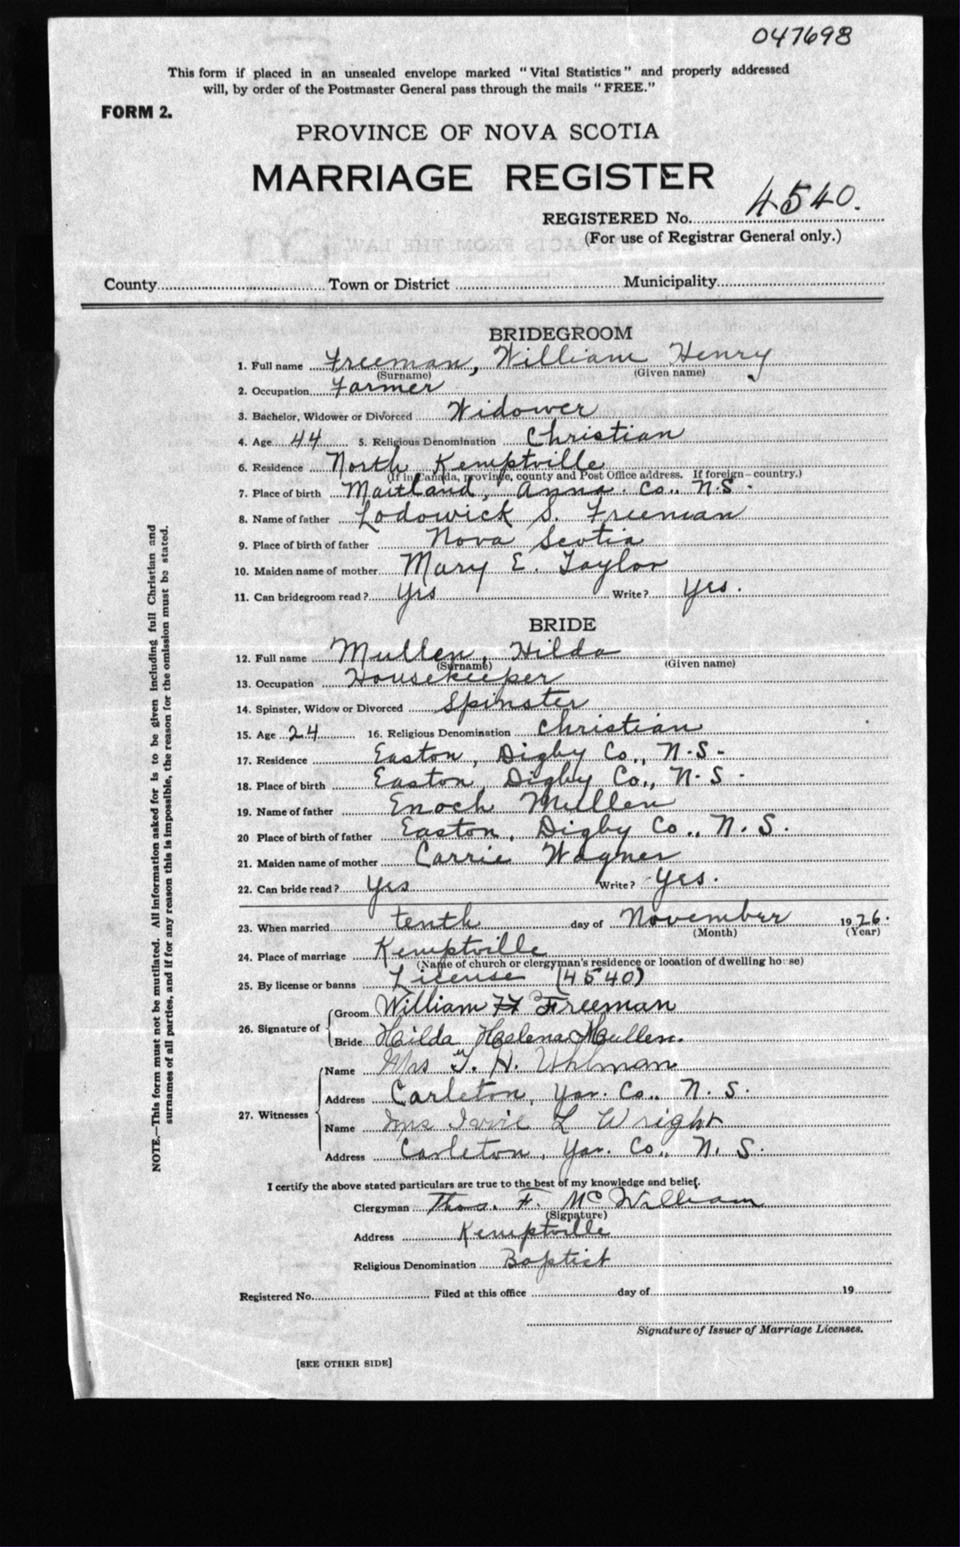 047698
This form if placed in an unsealed envelope marked "Vital Statistics" and properly addressed
will, by order of the Postmaster General pass through the mails "FREE."
FORM 2.
PROVINCE OF NOVA SCOTIA
MARRIAGE REGISTER
REGISTERED No. 4540.
(For use of Registrar General only.)
County Town or District Municipality
BRIDEGROOM
1. Full name Freeman, William Henry
(Surname) (Given name)
2. Occupation Farmer
3. Bachelor, Widower or Divorced Widower
4. Age 44 5. Religious Denomination Christian
6. Residence North Kemptville
(If in Canada, province, county and Post Office address. If foreign—country.)
7. Place of birth Maitland, Anna. Co., N.S.
8. Name of father Lodowick S. Freeman
9. Place of birth of father Nova Scotia
10. Maiden name of mother Mary E. Taylor
11. Can bridegroom read? Yes Write? Yes.
BRIDE
12. Full name Mullen, Hilda
(Surname) (Given name)
13. Occupation Housekeeper
14. Spinster, Widow or Divorced Spinster
15. Age 24 16. Religious Denomination Christian
17. Residence Easton, Digby Co., N.S.
18. Place of birth Easton, Digby Co., N.S.
19. Name of father Enoch Mullen
20 Place of birth of father Easton, Digby Co., N.S.
21. Maiden name of mother Carrie Wagner
22. Can bride read? Yes Write? Yes.
23. When married tenth day of November 1926.
(Month) (Year)
24. Place of marriage Kemptville
(Name of church or clergyman's residence or location of dwelling house)
25. By license or banns License (4540)
26. Signature of Groom William H Freeman
Bride Hilda Helena Mullen.
27. Witnesses Name Mrs T. H. Uhlman
Address Carleton, Yar. Co., N.S.
Name Mrs L Wright
Address Carleton, Yar. Co., N.S.
I certify the above stated particulars are true to the best of my knowledge and belief.
Clergyman Thos. F. McWilliam
(Signature)
Address Kemptville
Religious Denomination Baptist
Registered No. Filed at this office day of 19
Signature of Issuer of Marriage Licenses.
[SEE OTHER SIDE]
NOTE.—This form must not be mutilated. All information asked for is to be given including full Christian and
surnames of all parties, and if for any reason this is impossible, the reason for the omission must be stated.